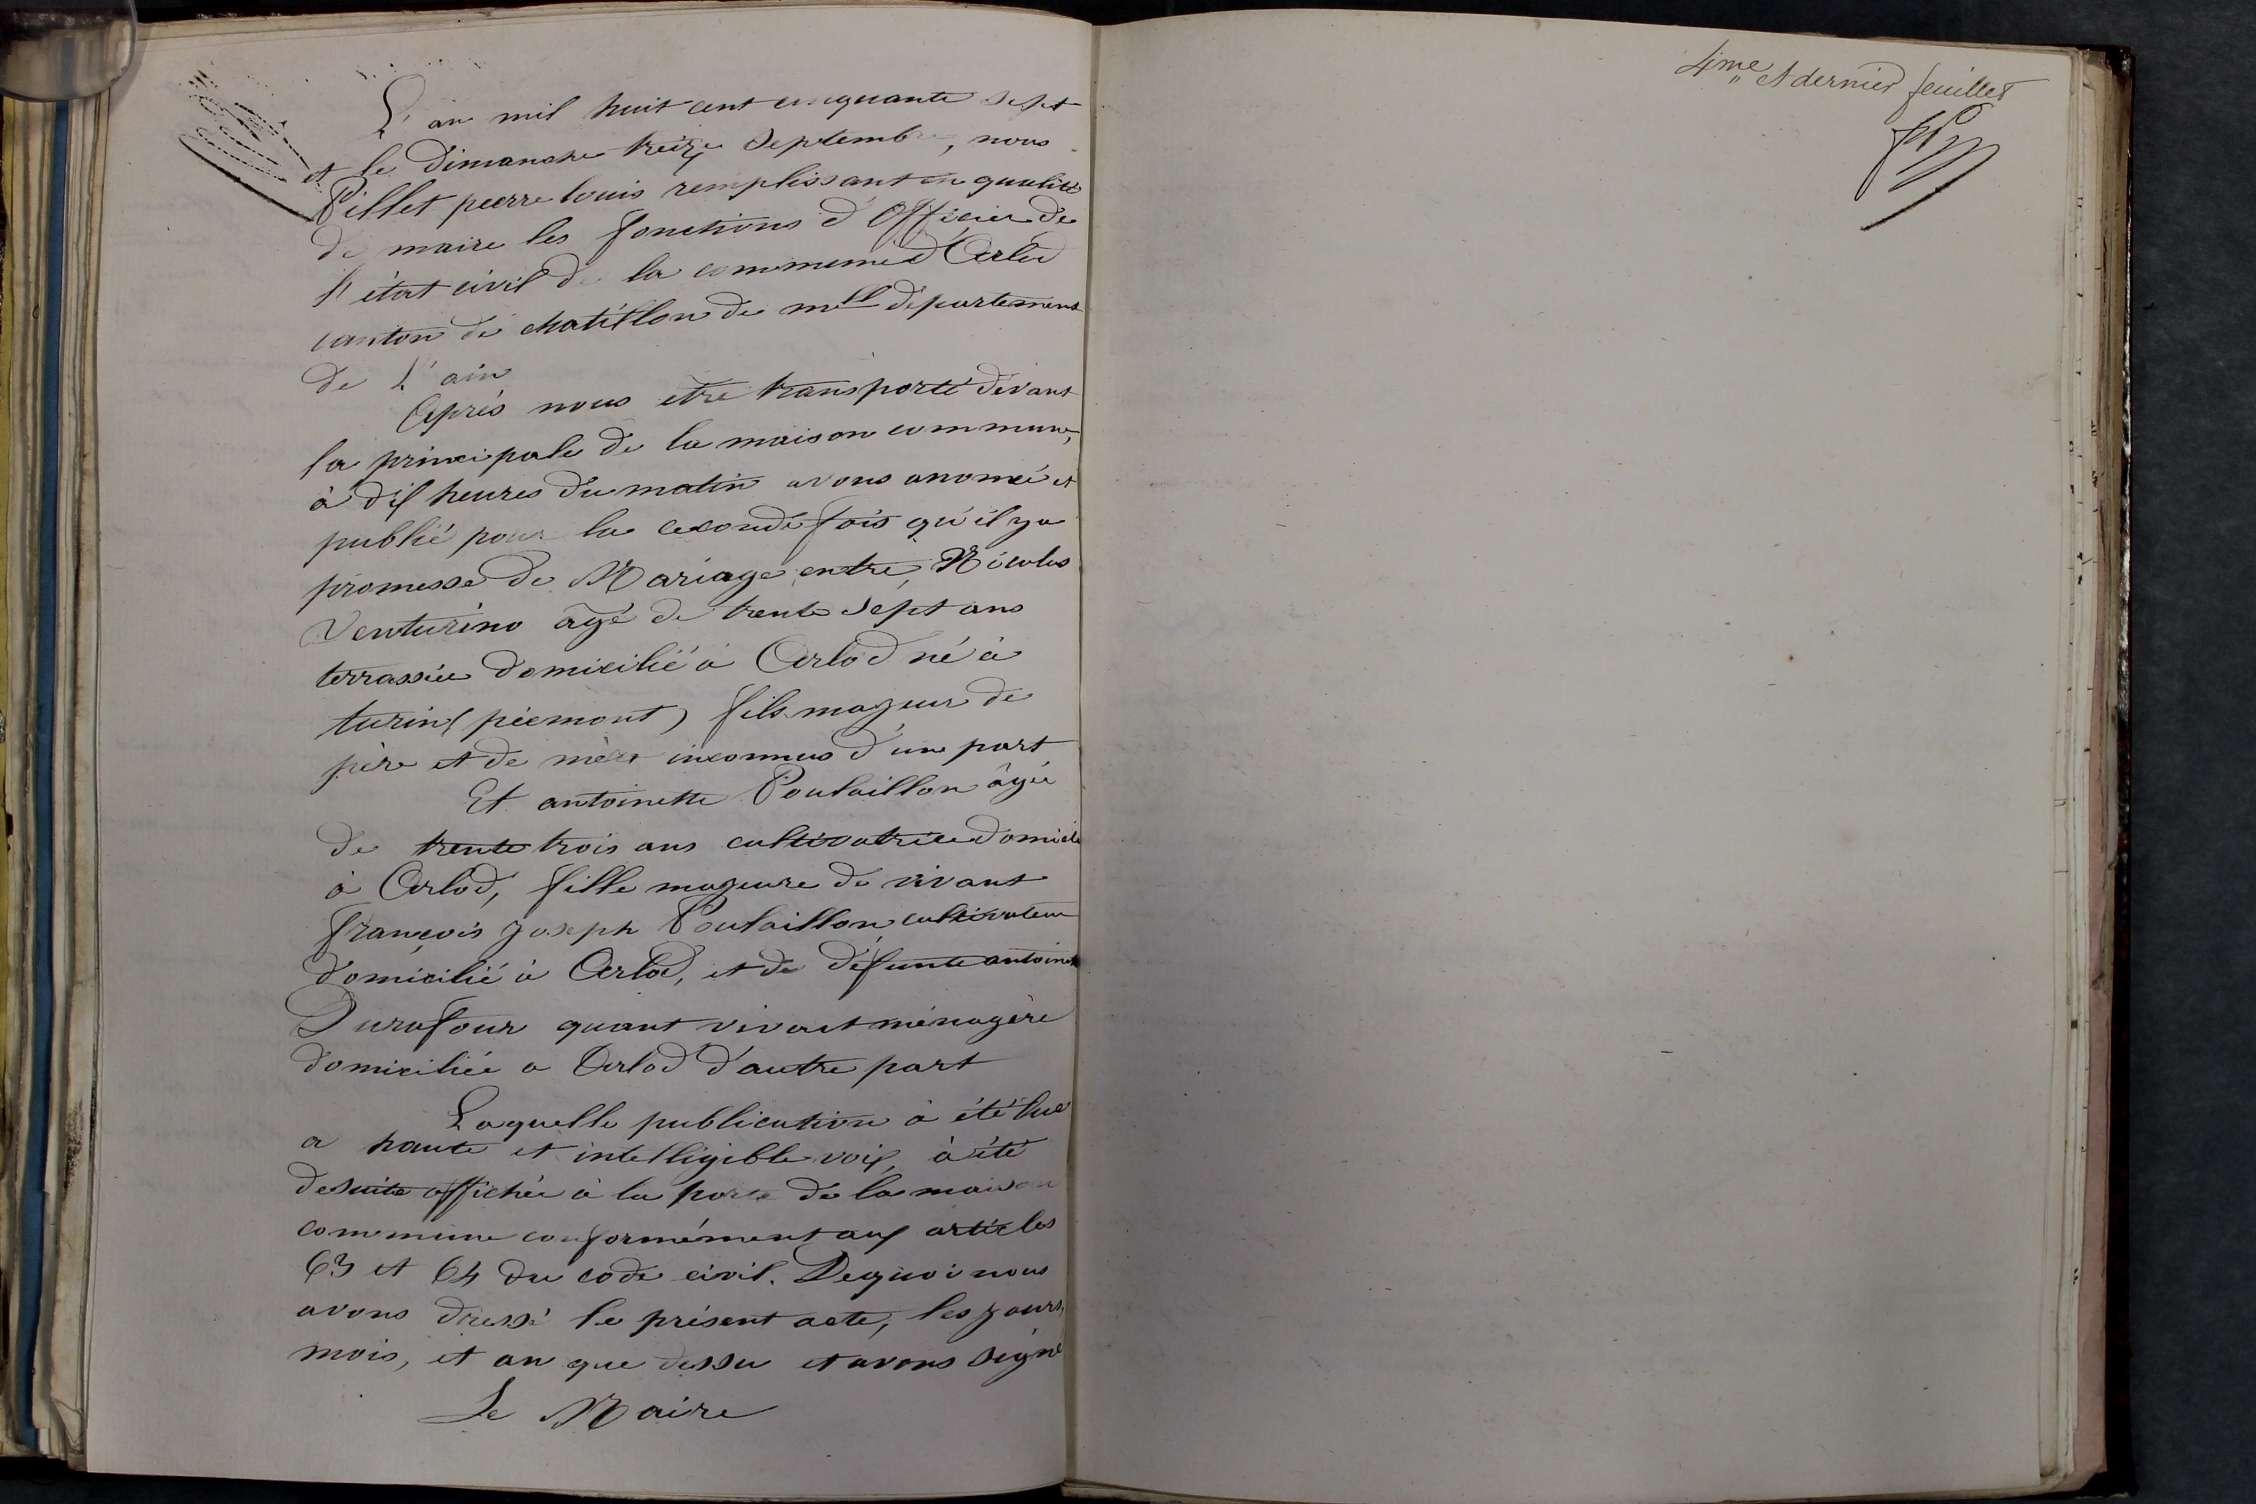 L'an mil huit cent cinquante sept
et le Dimanche treize Septembre, nous
Pillet pierre louis remplissant en qualité
de maire les fonctions d'Officier de
l'état civil de la commune d'Arlod
canton de chatillon de mlle département
de l'ain
Après nous etre transporté devant
la principale de la maison commune,
à dix heures du matin avons anoncé et
publié pour la seconde fois qu'il y a
promesse de Mariage entre, Nicolas
Venturino âgé de trente sept ans
terrassier domicilié à Arlod né à
turin (piemont) fils majeur de
père et de mère inconnus d'une part
Et antoinette Poulaillon âgée
de trente trois ans cultivatrice domicile
à Arlod, fille majeure de vivant
françois joseph Poulaillon cultivateur
domicilié à Arlod, et de défunte antoinette
Durafour quant vivait ménagère
domiciliée a Arlod d'autre part
Laquelle publication à été lue
a haute et intelligible voix, à été
desuite affichée à la porte de la maison
commune conformément aux articles
63 et 64 du code civil. Dequoi nous
avons dressé le présent acte, les jours,
mois, et an que dessu et avons signé
Le Maire
4me et dernier feuillet